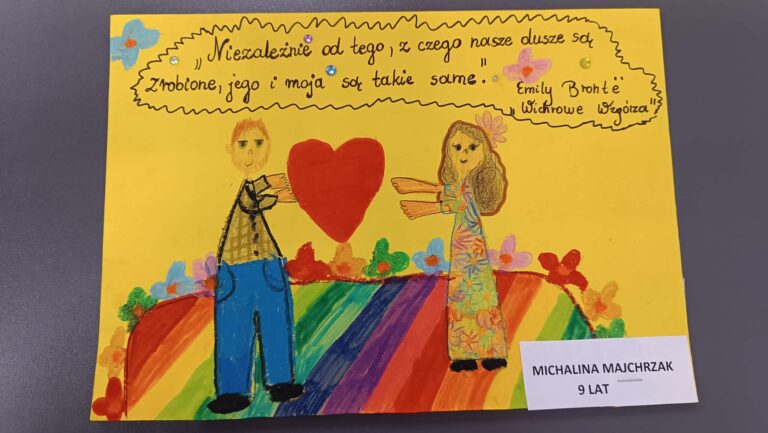 „Niezależnie od tego, z czego nasze dusze są
zrobione, jego i moja są takie same."
Emily Brontë
„Wichrowe Wzgórza"
MICHALINA MAJCHRZAK
9 LAT